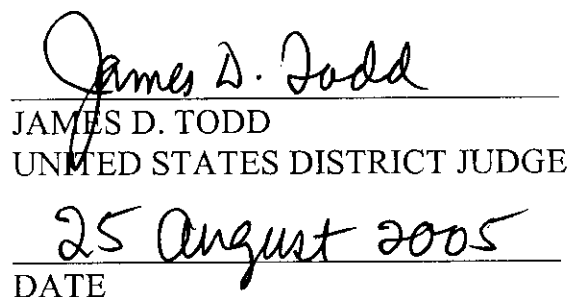 James D. Todd
JAMES D. TODD
UNITED STATES DISTRICT JUDGE
25 August 2005
DATE